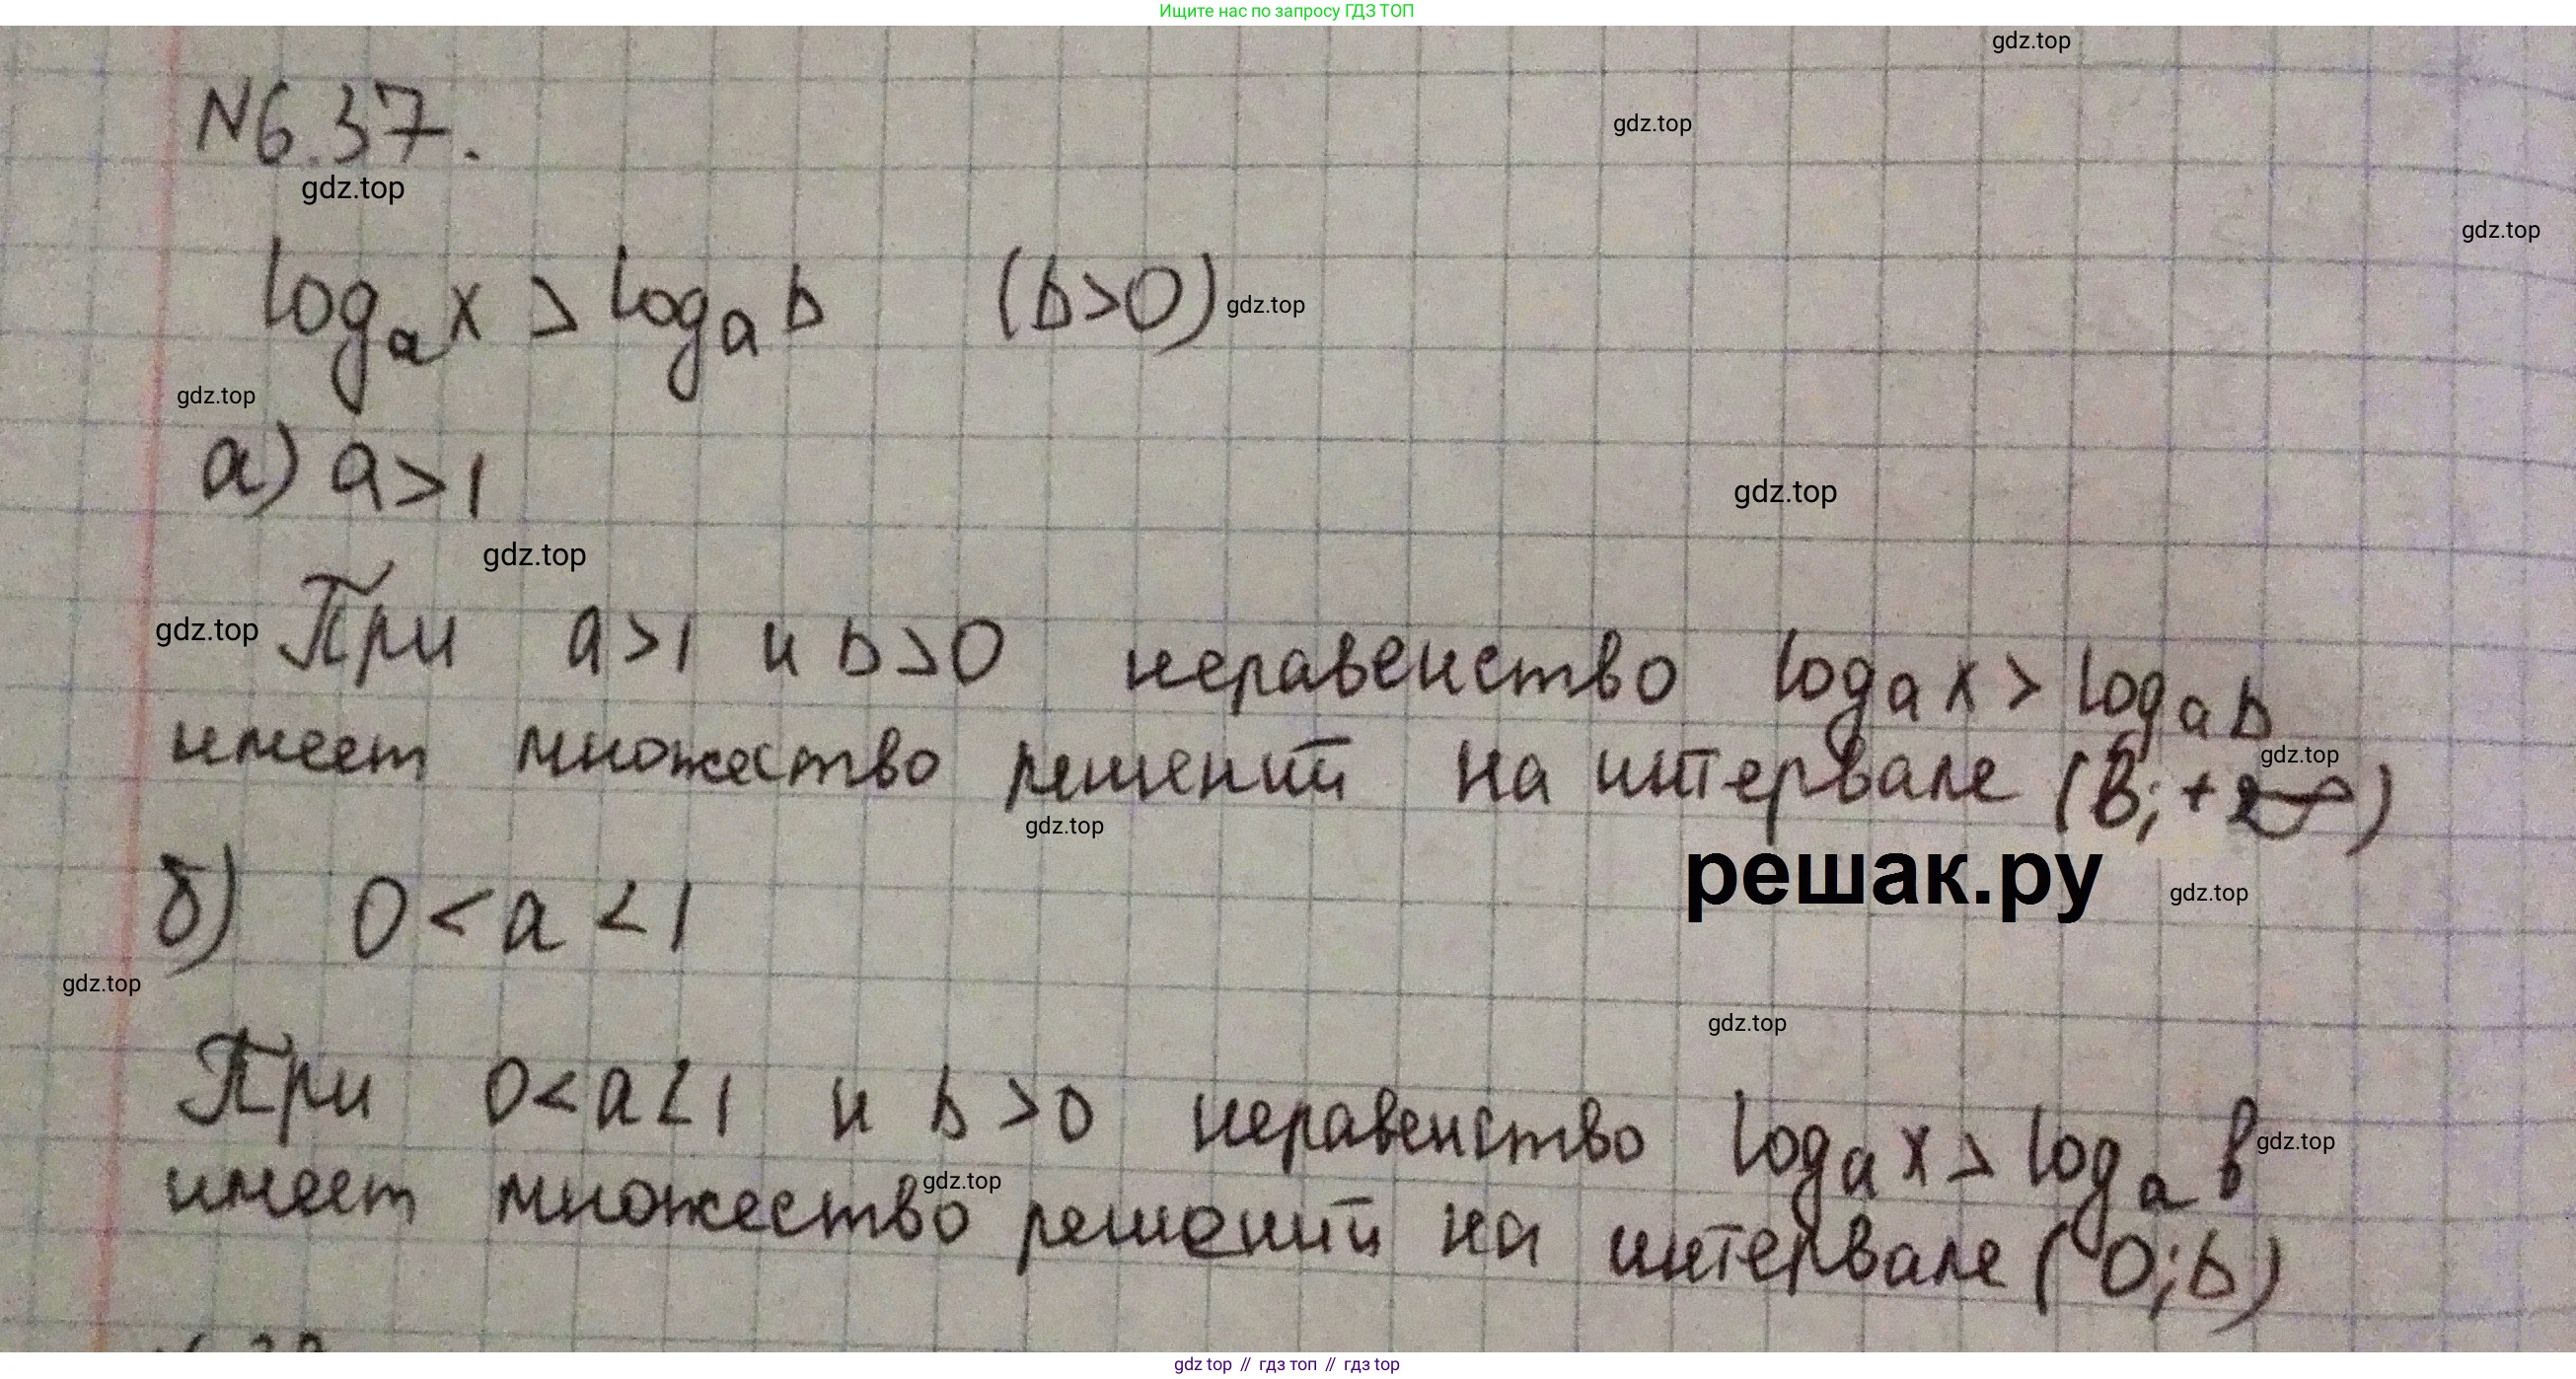 Ищите нас по запросу ГДЗ ТОП
gdz.top
N6.37.
gdz.top
gdz.top
gdz.top
logₐ x > logₐ b (b>0)
gdz.top
gdz.top
а) a>1
gdz.top
gdz.top
gdz.top
При a>1 и b>0 неравенство logₐ x > logₐ b
имеет множество решений на интервале (b; +∞)
gdz.top
gdz.top
решак.ру
gdz.top
б) 0<a<1
gdz.top
gdz.top
При 0<a<1 и b>0 неравенство logₐ x > logₐ b
gdz.top
gdz.top
имеет множество решений на интервале (0;b)
gdz top // гдз топ // гдз top